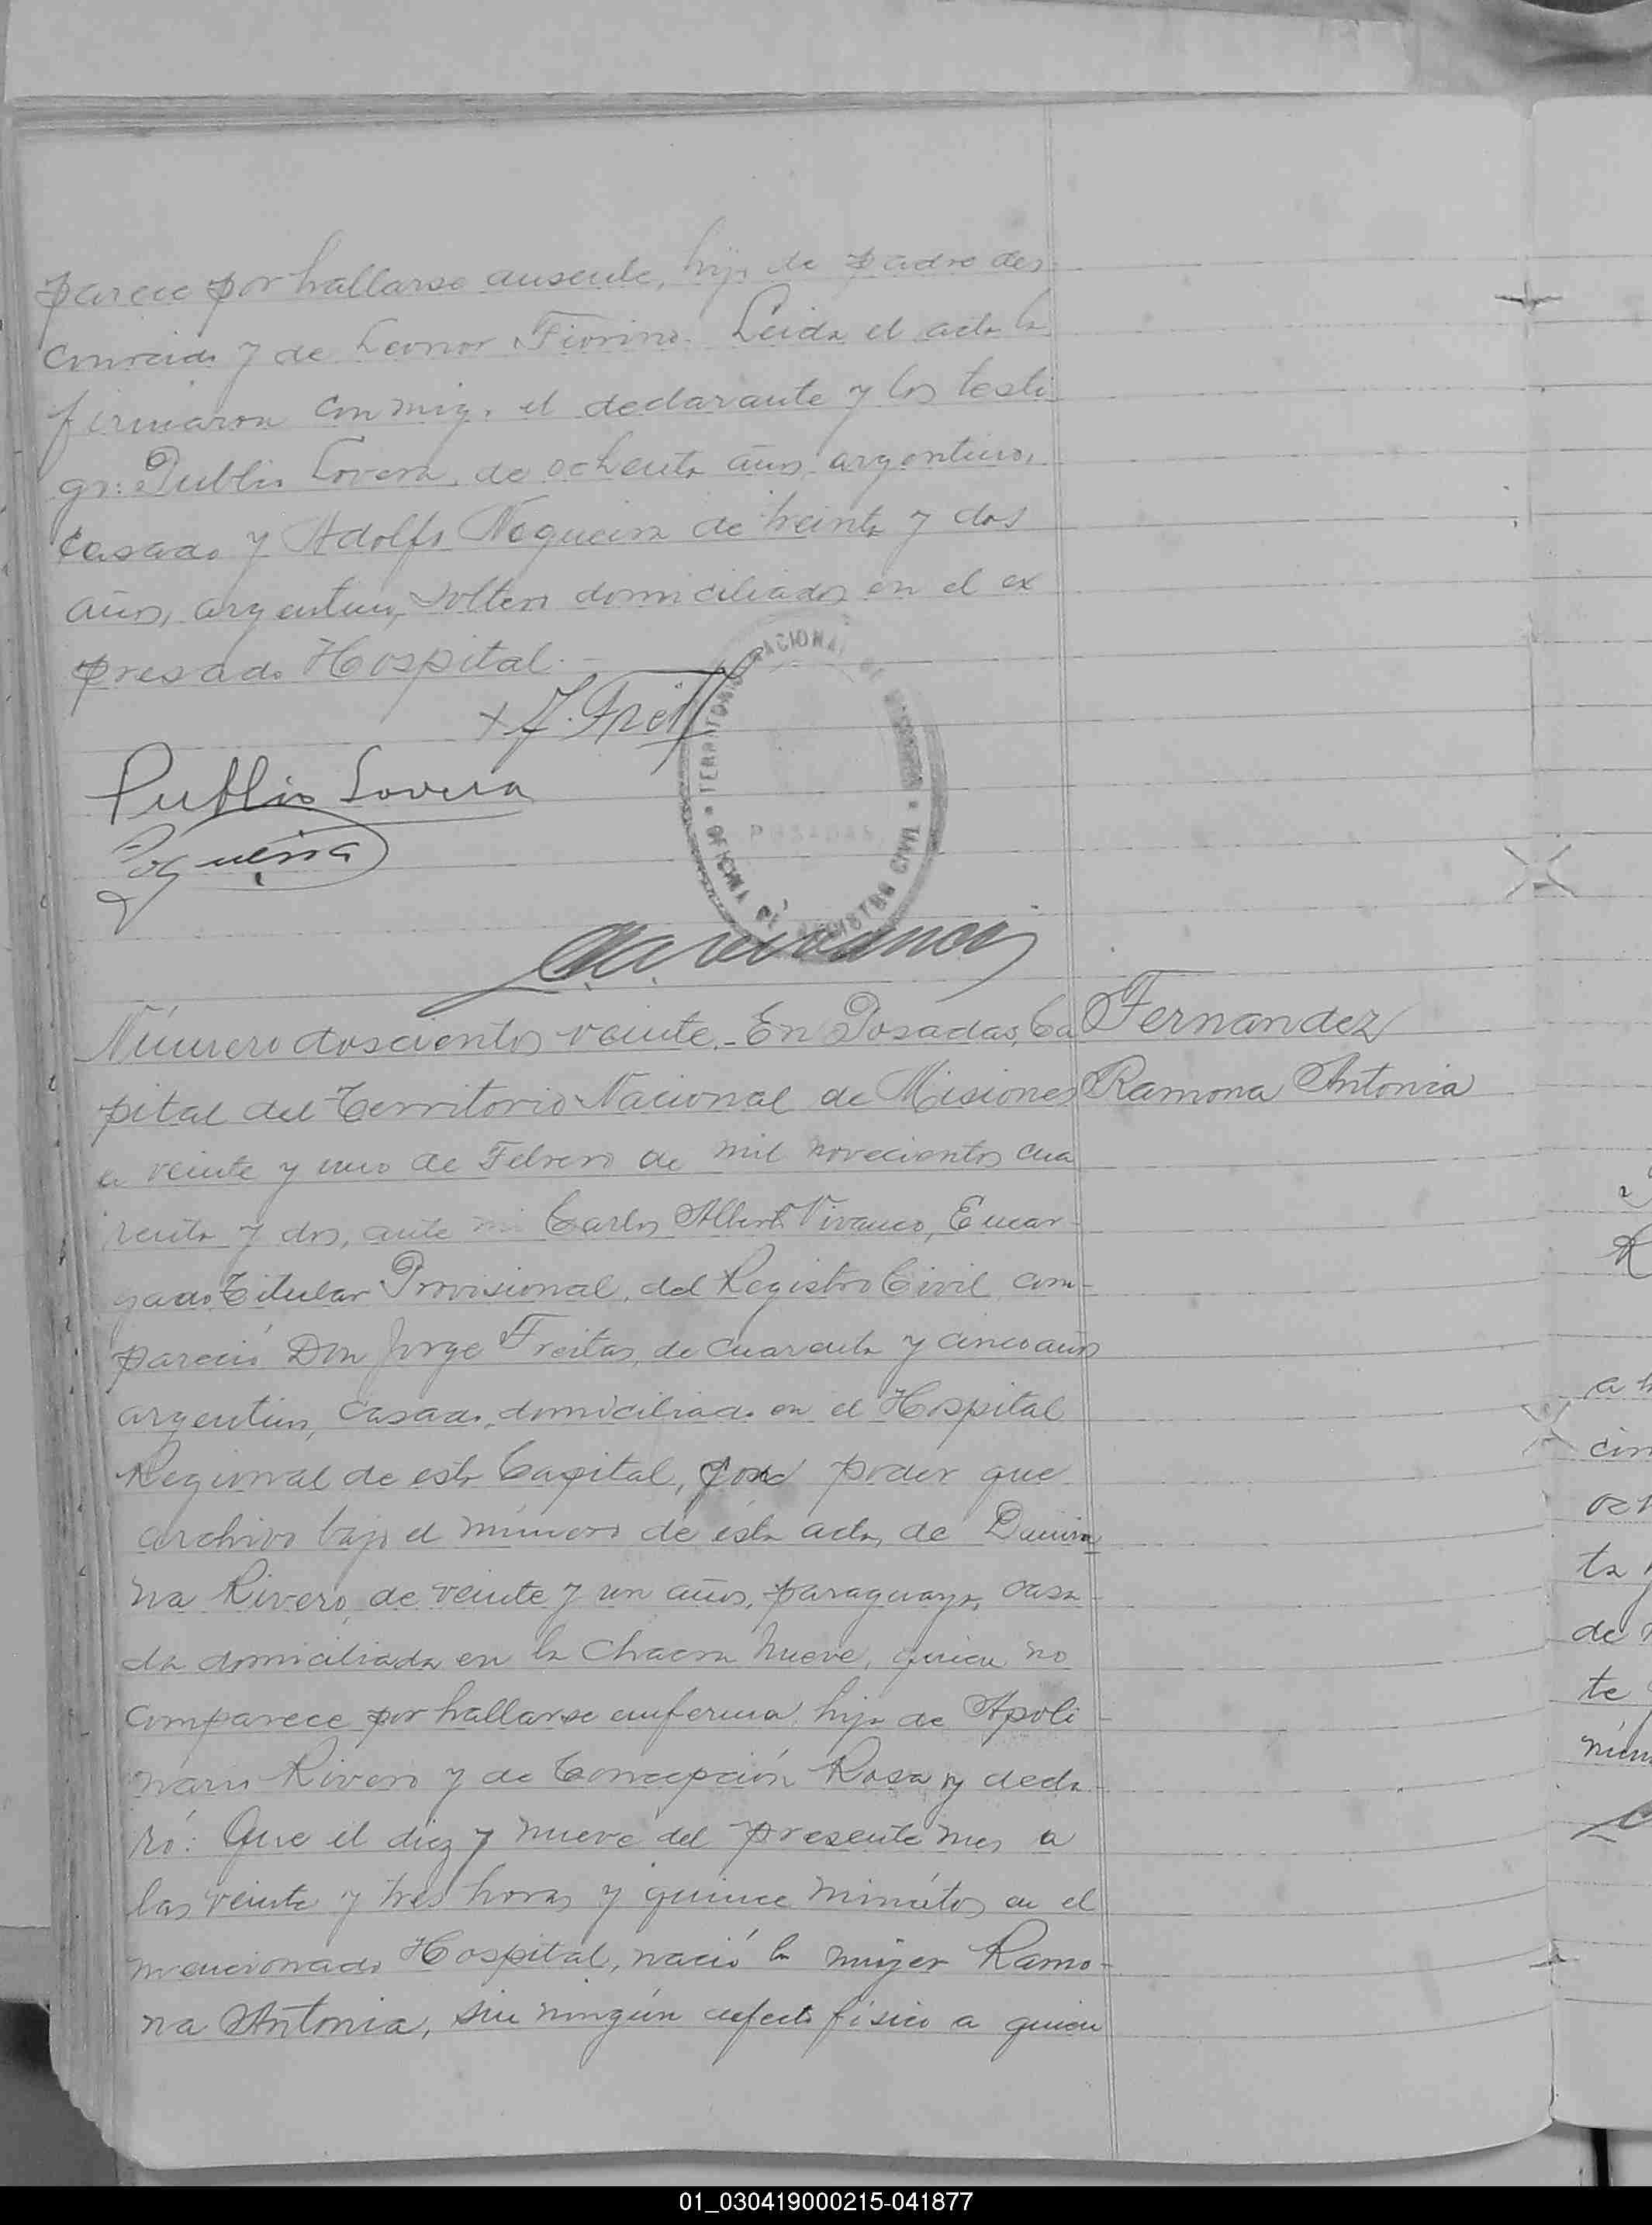 parece por hallarse ausente, hijo de padre des
conocido y de Leonor Fiorino. Leida el acta la
firmaron conmigo. el declarante y los testi
go: Publio Lovera, de ochenta años, argentino,
casado y Adolfo Nogueira de treinta y dos
años, argentino, soltero domiciliados en el ex
presado Hospital.-
Publio Lovera
Nogueira
TERRITORIO NACIONAL DE MISIONES
POSADAS
OFICINA DE REGISTRO CIVIL
Número doscientos veinte.- En Posadas, Ca
Fernandez
pital del Territorio Nacional de Misiones
Ramona Antonia
a veinte y uno de Febrero de mil novecientos cua
renta y dos, ante mi Carlos Alberto Vivanco, Encar-
gado Titular Provisional, del Registro Civil com-
pareció Don Jorge Freitas, de cuarenta y cinco años
argentino, casado, domiciliado en el Hospital
Regional de esta Capital, por poder que
archivo bajo el número de ésta acta, de
na Rivero, de veinte y un años, paraguaya, casa-
da domiciliada en la Chacra Nueve, quien no
comparece por hallarse enferma, hija de Apoli-
nario Rivero y de Concepción Rosa, y decla-
ró: Que el diez y nueve del presente mes a
las veinte y tres horas y quince minútos en el
mencionado Hospital, nació la mujer Ramo-
na Antonia, sin ningún defecto físico a quien
01_030419000215-041877